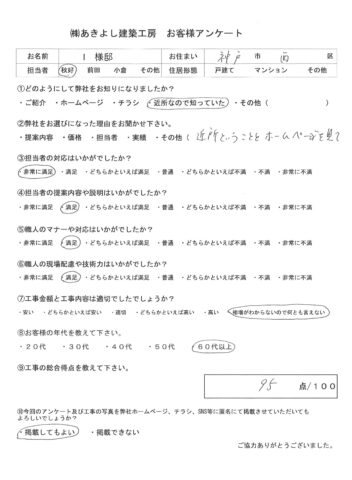 ㈱あきよし建築工房　お客様アンケート
お名前　I 様邸　お住まい　神戸 市 西 区
担当者　秋好　前田　小倉　その他　住居形態　戸建て　マンション　その他
①どのようにして弊社をお知りになりましたか？
・ご紹介　・ホームページ　・チラシ　・近所なので知っていた　・その他（　　　）
②弊社をお選びになった理由をお聞かせ下さい。
・提案内容　・価格　・担当者　・実績　・その他（近所ということとホームページを見て
③担当者の対応はいかがでしたか？
・非常に満足　・満足　・どちらかといえば満足　・普通　・どちらかといえば不満　・不満　・非常に不満
④担当者の提案内容や説明はいかがでしたか？
・非常に満足　・満足　・どちらかといえば満足　・普通　・どちらかといえば不満　・不満　・非常に不満
⑤職人のマナーや対応はいかがでしたか？
・非常に満足　・満足　・どちらかといえば満足　・普通　・どちらかといえば不満　・不満　・非常に不満
⑥職人の現場配慮や技術力はいかがでしたか？
・非常に満足　・満足　・どちらかといえば満足　・普通　・どちらかといえば不満　・不満　・非常に不満
⑦工事金額と工事内容は適切でしたでしょうか？
・安い　・どちらかといえば安い　・適切　・どちらかといえば高い　・高い　・相場がわからないので何とも言えない
⑧お客様の年代を教えて下さい。
・２０代　・３０代　・４０代　・５０代　・６０代以上
⑨工事の総合得点を教えて下さい。
95 点/１００
⑩今回のアンケート及び工事の写真を弊社ホームページ、チラシ、SNS等に匿名にて掲載させていただいても
よろしいでしょうか？
・掲載してもよい　・掲載できない
ご協力ありがとうございました。